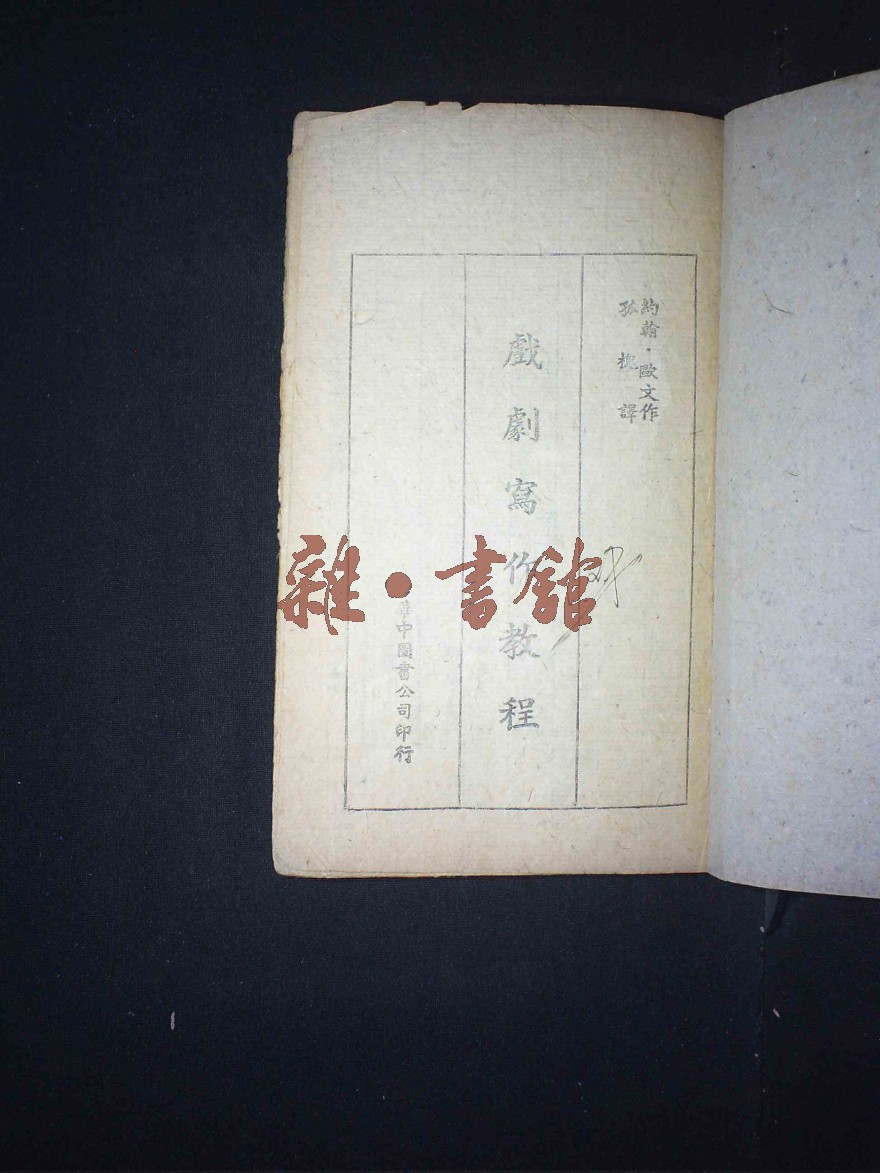 約翰・歐文作
孤槐譯
戲劇寫作教程
華中圖書公司印行
雜・書館